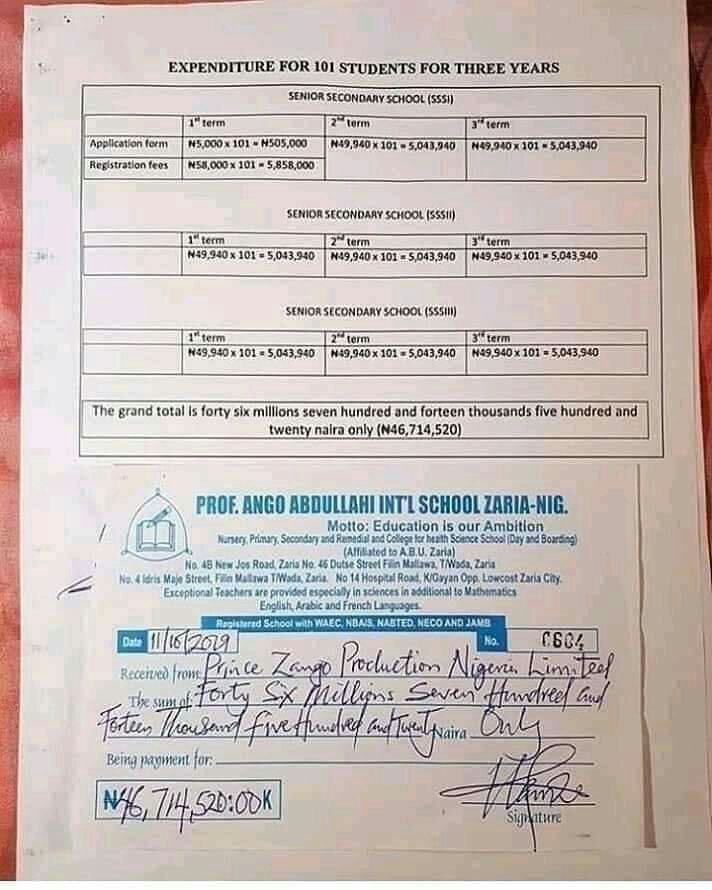 EXPENDITURE FOR 101 STUDENTS FOR THREE YEARS
SENIOR SECONDARY SCHOOL (SSSI)
1st term 2nd term 3rd term
Application form ₦5,000 x 101 = ₦505,000 ₦49,940 x 101 = 5,043,940 ₦49,940 x 101 = 5,043,940
Registration fees ₦58,000 x 101 = 5,858,000
SENIOR SECONDARY SCHOOL (SSSII)
1st term 2nd term 3rd term
₦49,940 x 101 = 5,043,940 ₦49,940 x 101 = 5,043,940 ₦49,940 x 101 = 5,043,940
SENIOR SECONDARY SCHOOL (SSSIII)
1st term 2nd term 3rd term
₦49,940 x 101 = 5,043,940 ₦49,940 x 101 = 5,043,940 ₦49,940 x 101 = 5,043,940
The grand total is forty six millions seven hundred and forteen thousands five hundred and
twenty naira only (₦46,714,520)
PROF. ANGO ABDULLAHI INT'L SCHOOL ZARIA-NIG.
Motto: Education is our Ambition
Nursery, Primary, Secondary and Remedial and College for health Science School (Day and Boarding)
(Affiliated to A.B.U. Zaria)
No. 4B New Jos Road, Zaria No. 46 Dutse Street Filin Mallawa, T/Wada, Zaria
No. 4 Idris Maje Street, Filin Mallawa T/Wada, Zaria. No 14 Hospital Road, K/Gayan Opp. Lowcost Zaria City.
Exceptional Teachers are provided especially in sciences in additional to Mathematics
English, Arabic and French Languages.
Registered School with WAEC, NBAIS, NABTED, NECO AND JAMB
Date 11/10/2019 No. 0604
Received from: Prince Zango Production Nigeria Limited
The sum of: Forty Six Millions Seven Hundred and
Forteen Thousand five Hundred and Twenty Naira Only
Being payment for:
₦46,714,520:00K
Signature